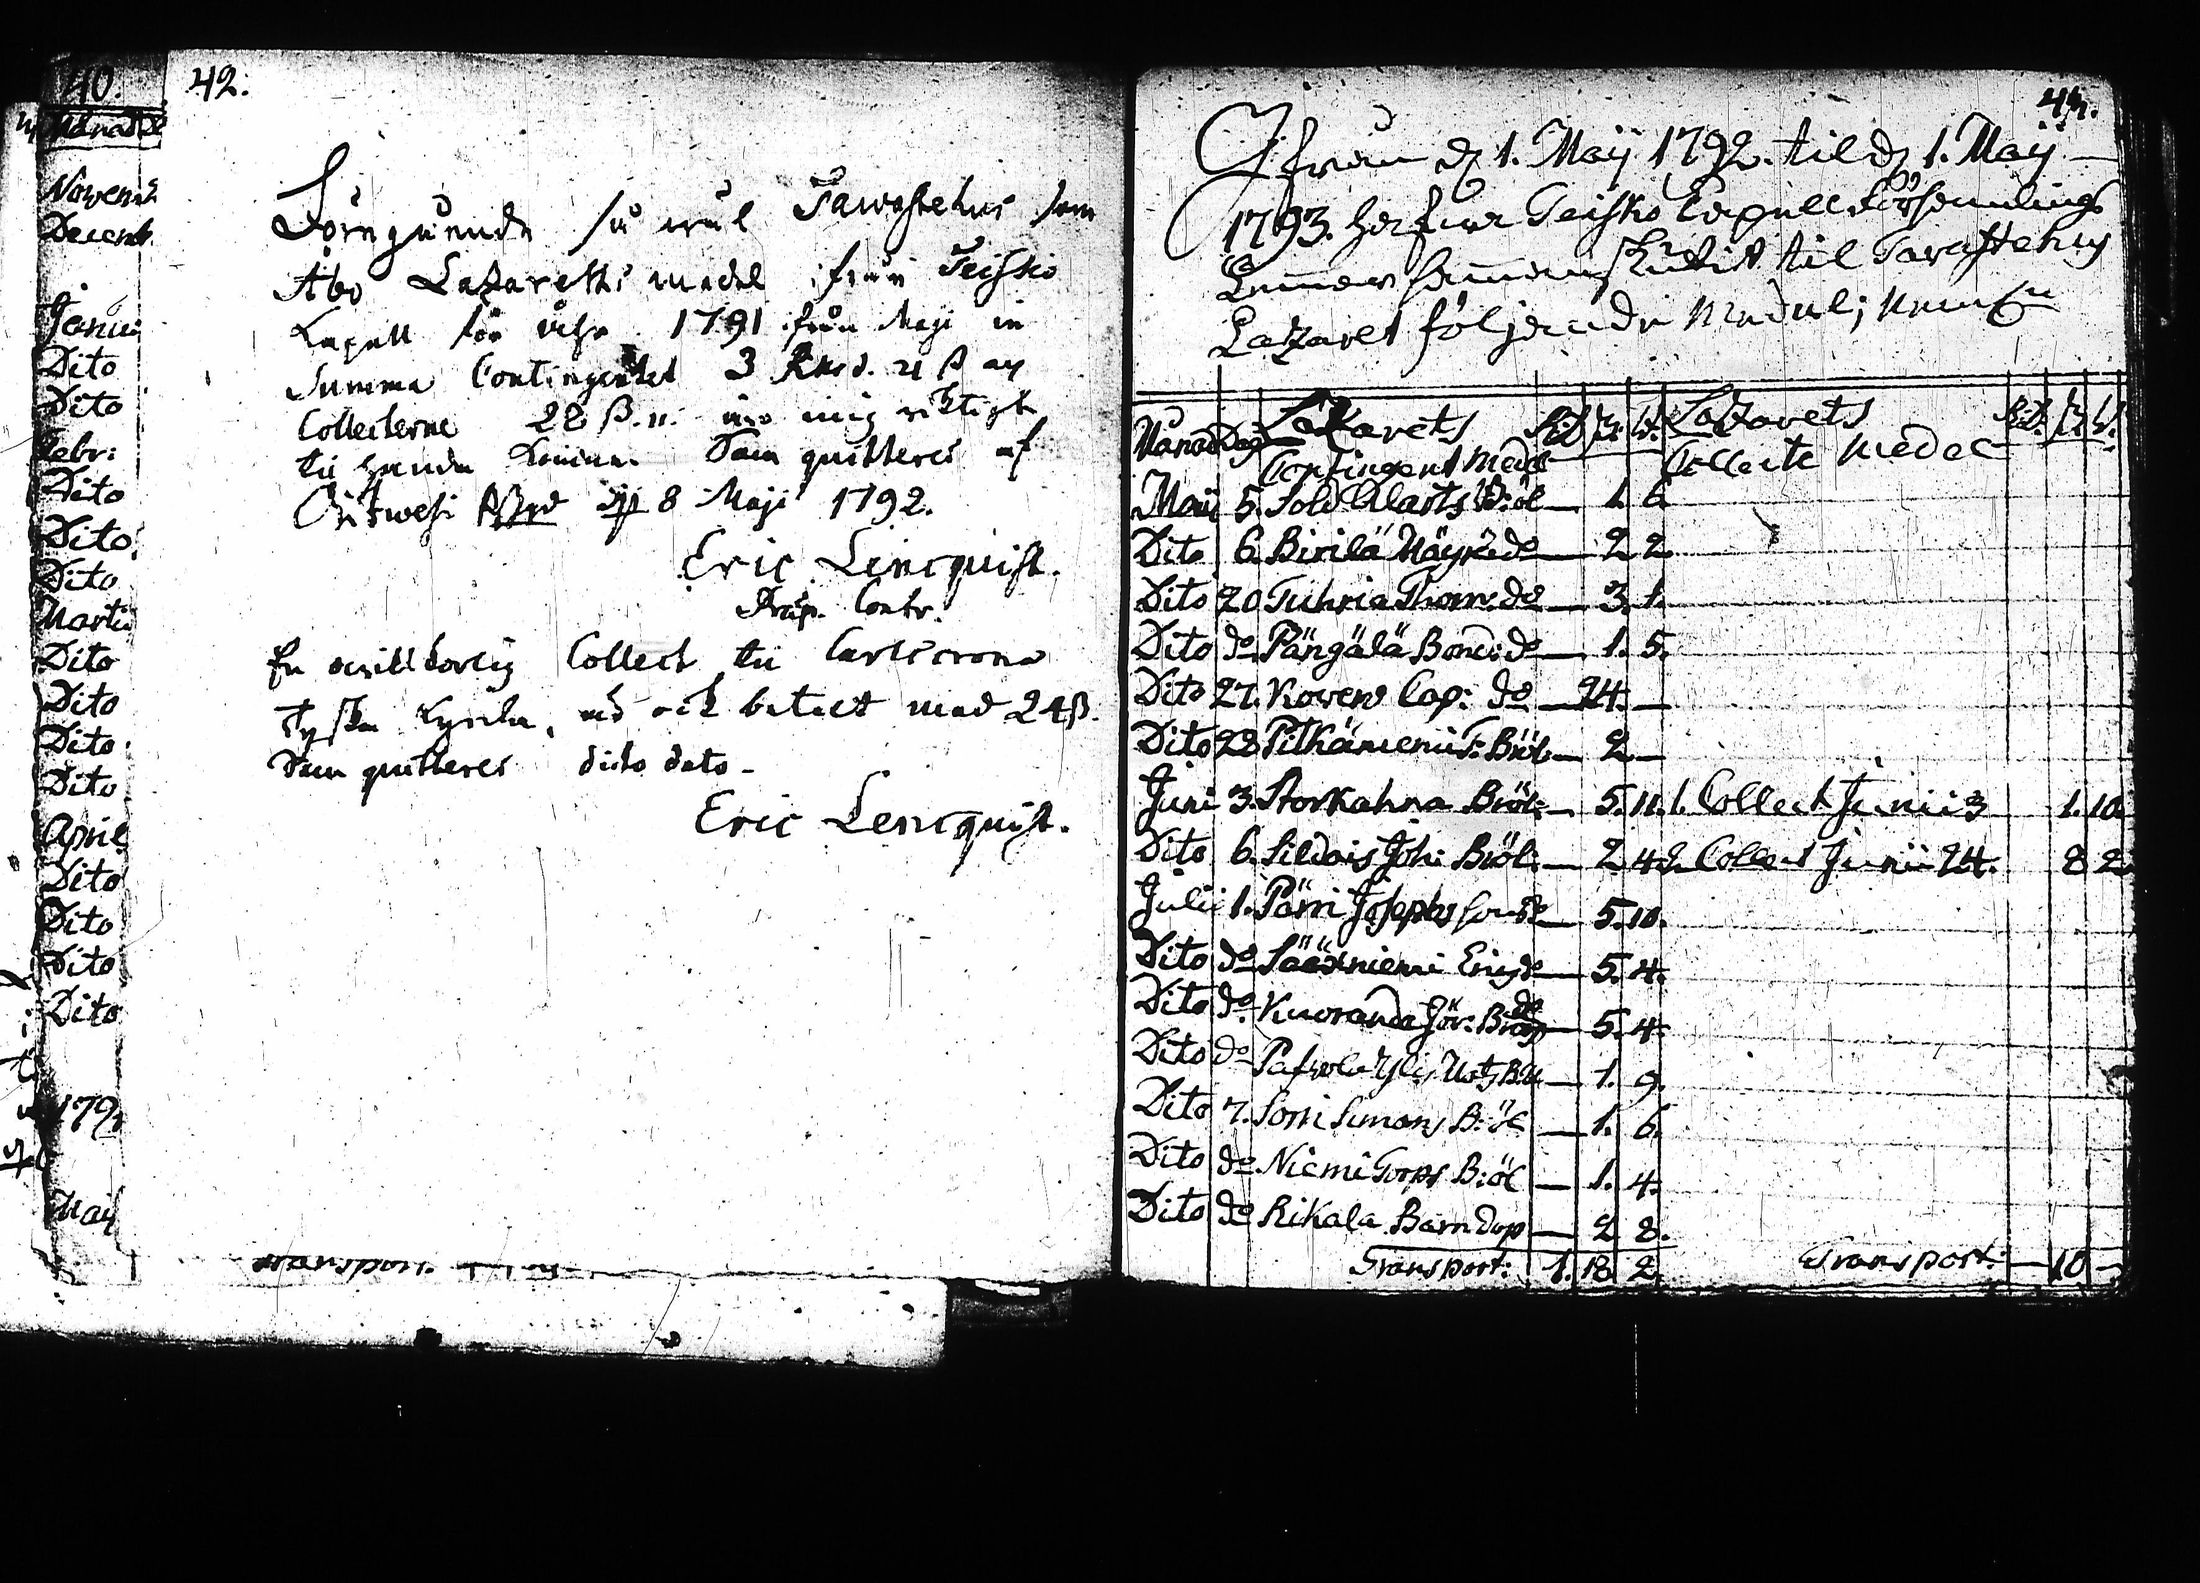 40.
Månad
Novemb
Decemb
Janu:
Dito
Dito
Febr:
Dito
Dito
Dito
Martii
Dito
Dito
Dito
Dito
April
Dito
Dito
Dito
Dito
179
Maij
42.
Föregående så wäl Tawastehus som
Åbo Lazaretts medel ifrån Teisko
Capell för åhr 1791 ifrån Maji in
Summa Contingentet 3 Rksd. 21 ß
Collecterne 28 ß. 11. mig riktigt
til handa komne. Som quitteres af
Oritwesi d 8 Maji 1792.
Eric Lencquist.
Præp. Contr.
En Collect til Carlscrona
Tyska Kyrka, är ock betalt med 24 ß.
Som quitteres dito dato.
Eric Lencquist.
Transport.
43.
Ifrån d 1. Maij 1792. til d 1. Maij
1793. hafwer Teisko Capell Församlings
til Tavastehus
Lazaret följande Medel; Nemln
Månad Dag Lazarets Contingent Medel RD. ß. Lazarets Collecte Medel RD. ß.
Maij 5. Sold Alarts Bröl — 1. 6.
Dito 6. Birilä Mäyrä do — 2 2.
Dito 20 Tuhria Thom: do — 3. 1.
Dito do Pängälä Bond: do — 1. 5.
Dito 27. Kovero Cap: do — 24. —
Dito 28 Pitkäniemi T: Bröl — 2 —
Juni 3. Storkahna Bröl: — 5. 11. 1. Collect Junii 3 1. 10.
Dito 6. Sildois Joh: Bröl: — 2 4 2. Collect Junii 24. 8 2
Julii 1. Pärri Josephs do — 5. 10.
Dito do Sääxniemi Erics do — 5. 4.
Dito do Kuoranda Jör: do — 5. 4.
Dito do Pafvola Yli — 1. 9.
Dito 7. Sorri Simons B:öl — 1. 6.
Dito do Niemi Torps B:öl — 1. 4.
Dito do Rikala Barndop — 2 8.
Transport: 1. 18 2. Transport: — 10 —